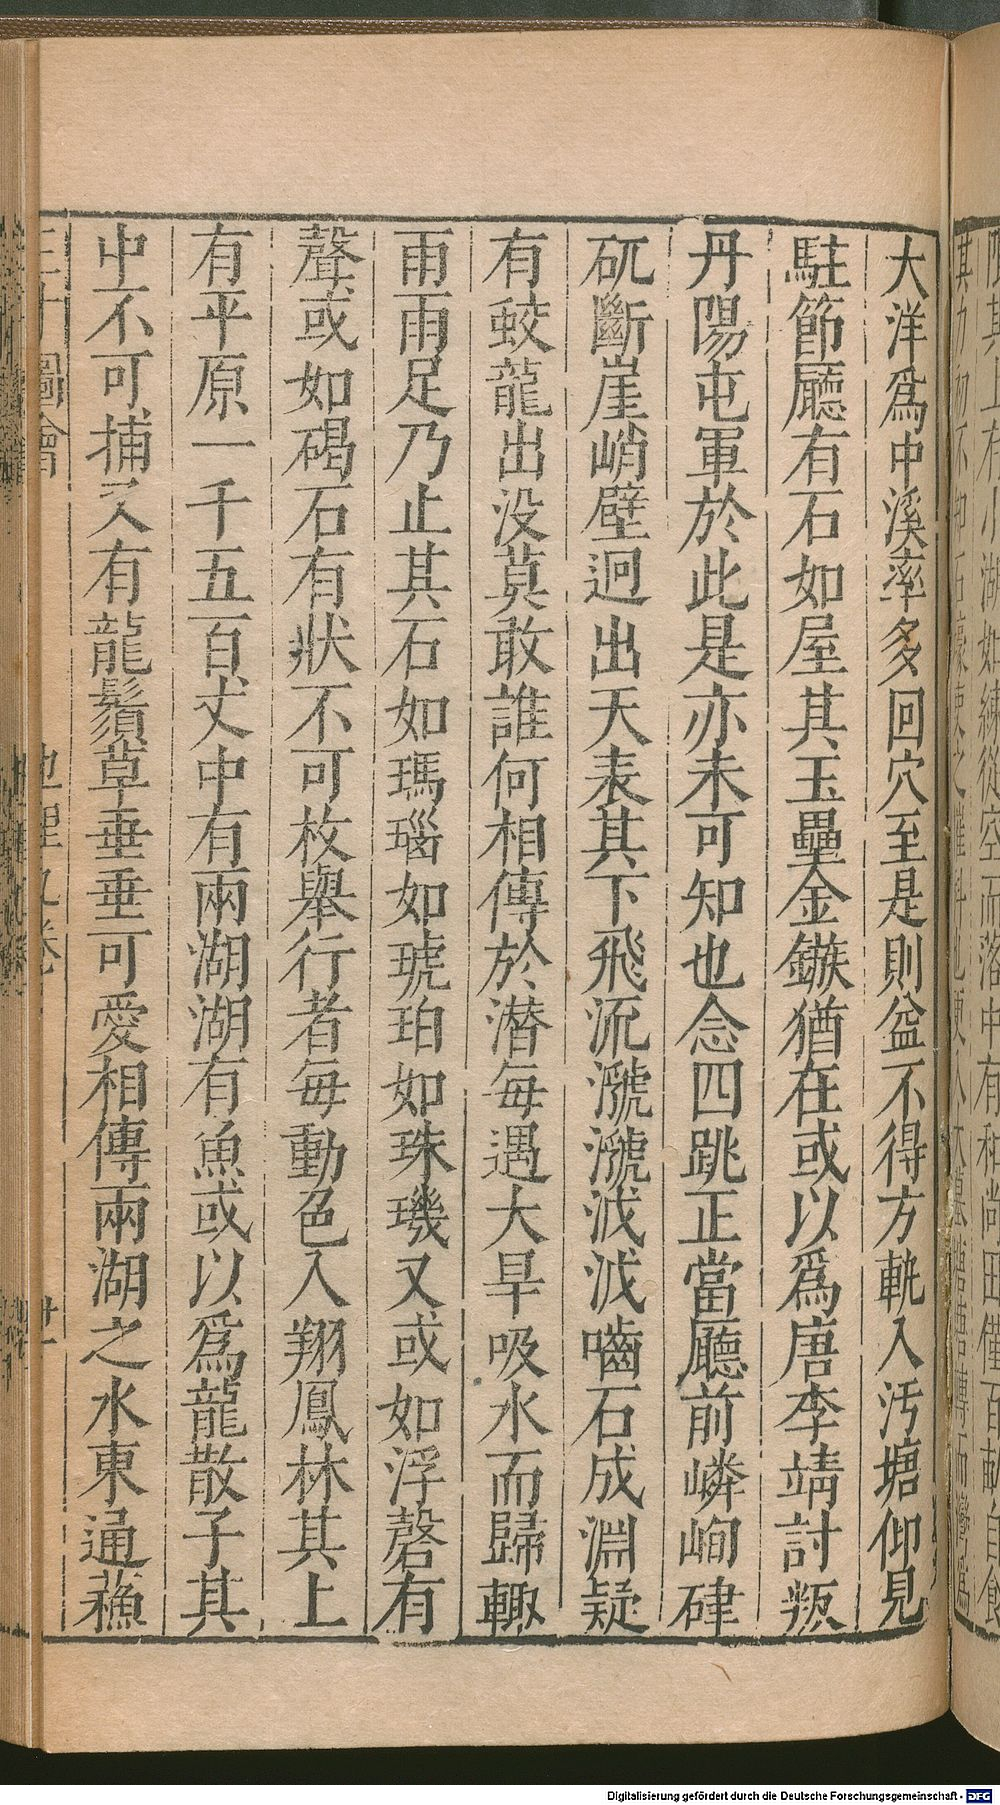 大洋爲中溪率多回穴至是則盆不得方軌入汚塘仰見
駐節廳有石如屋其玉壘金鏃猶在或以爲唐李靖討叛
丹陽屯軍於此是亦未可知也念四跳正當廳前嶙峋硉
矹斷崖峭壁迥出天表其下飛流瀧瀧㳀㳀嚙石成淵疑
有蛟龍出没莫敢誰何相傳於潜每遇大旱吸水而歸輙
雨雨足乃止其石如瑪瑙如琥珀如珠璣又或如浮磬有
聲或如碣石有狀不可枚舉行者每動色入翔鳳林其上
有平原一千五百丈中有兩湖湖有魚或以爲龍散子其
中不可捕又有龍鬚草垂垂可愛相傳兩湖之水東通蘓
三才圖會
地理九卷
廿一
Digitalisierung gefördert durch die Deutsche Forschungsgemeinschaft - DFG